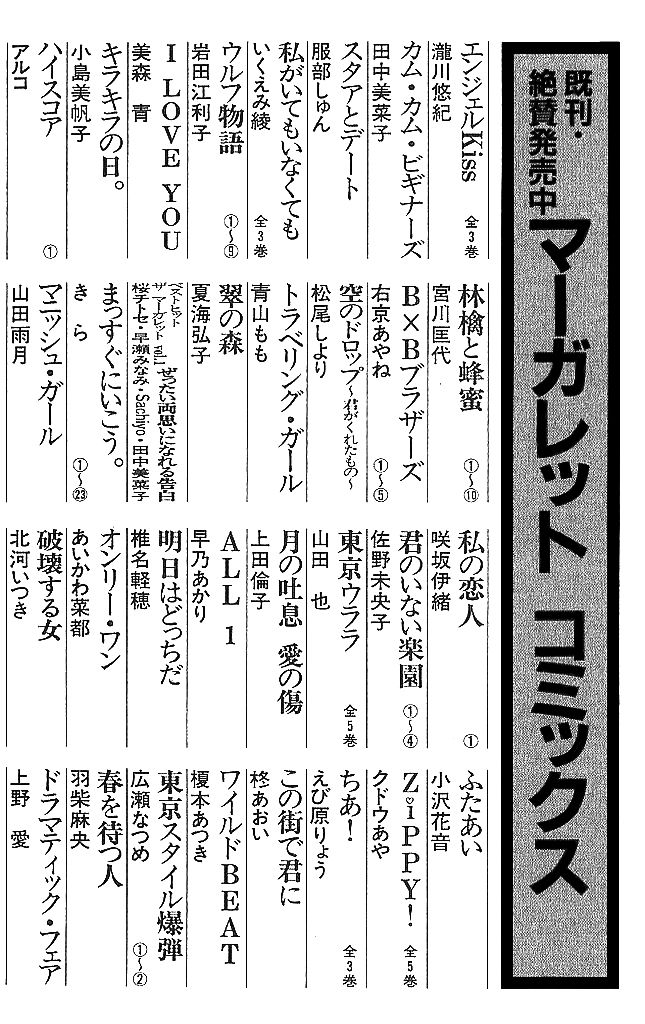 既刊・絶賛発売中
マーガレット コミックス
エンジェルKiss 全3巻
瀧川悠紀
カム・カム・ビギナーズ
田中美菜子
スタアとデート
服部しゅん
私がいてもいなくても 全3巻
いくえみ綾
ウルフ物語 ①〜⑤
岩田江利子
I LOVE YOU
美森 青
キラキラの日。
小島美帆子
ハイスコア ①
アルコ
林檎と蜂蜜 ①〜⑩
宮川匡代
B×Bブラザーズ ①〜⑤
右京あやね
空のドロップ〜君がくれたもの〜
松尾しより
トラベリング・ガール
青山もも
翠の森
夏海弘子
ベストヒット ザ マーガレット vol.1 ぜったい両思いになれる告白
桜チトセ・早瀬みなみ・Sachiyo・田中美菜子
まっすぐにいこう。 ①〜㉓
きら
マニッシュ・ガール
山田雨月
私の恋人 ①
咲坂伊緒
君のいない楽園 ①〜④
佐野未央子
東京ウララ 全5巻
山田 也
月の吐息 愛の傷
上田倫子
ALL 1
早乃あかり
明日はどっちだ
椎名軽穂
オンリー・ワン
あいかわ菜都
破壊する女
北河いつき
ふたあい
小沢花音
ZiPPY! 全5巻
クドウあや
ちあ! 全3巻
えび原りょう
この街で君に
柊あおい
ワイルドBEAT
榎本あつき
東京スタイル爆弾 ①〜②
広瀬なつめ
春を待つ人
羽柴麻央
ドラマティック・フェア
上野 愛